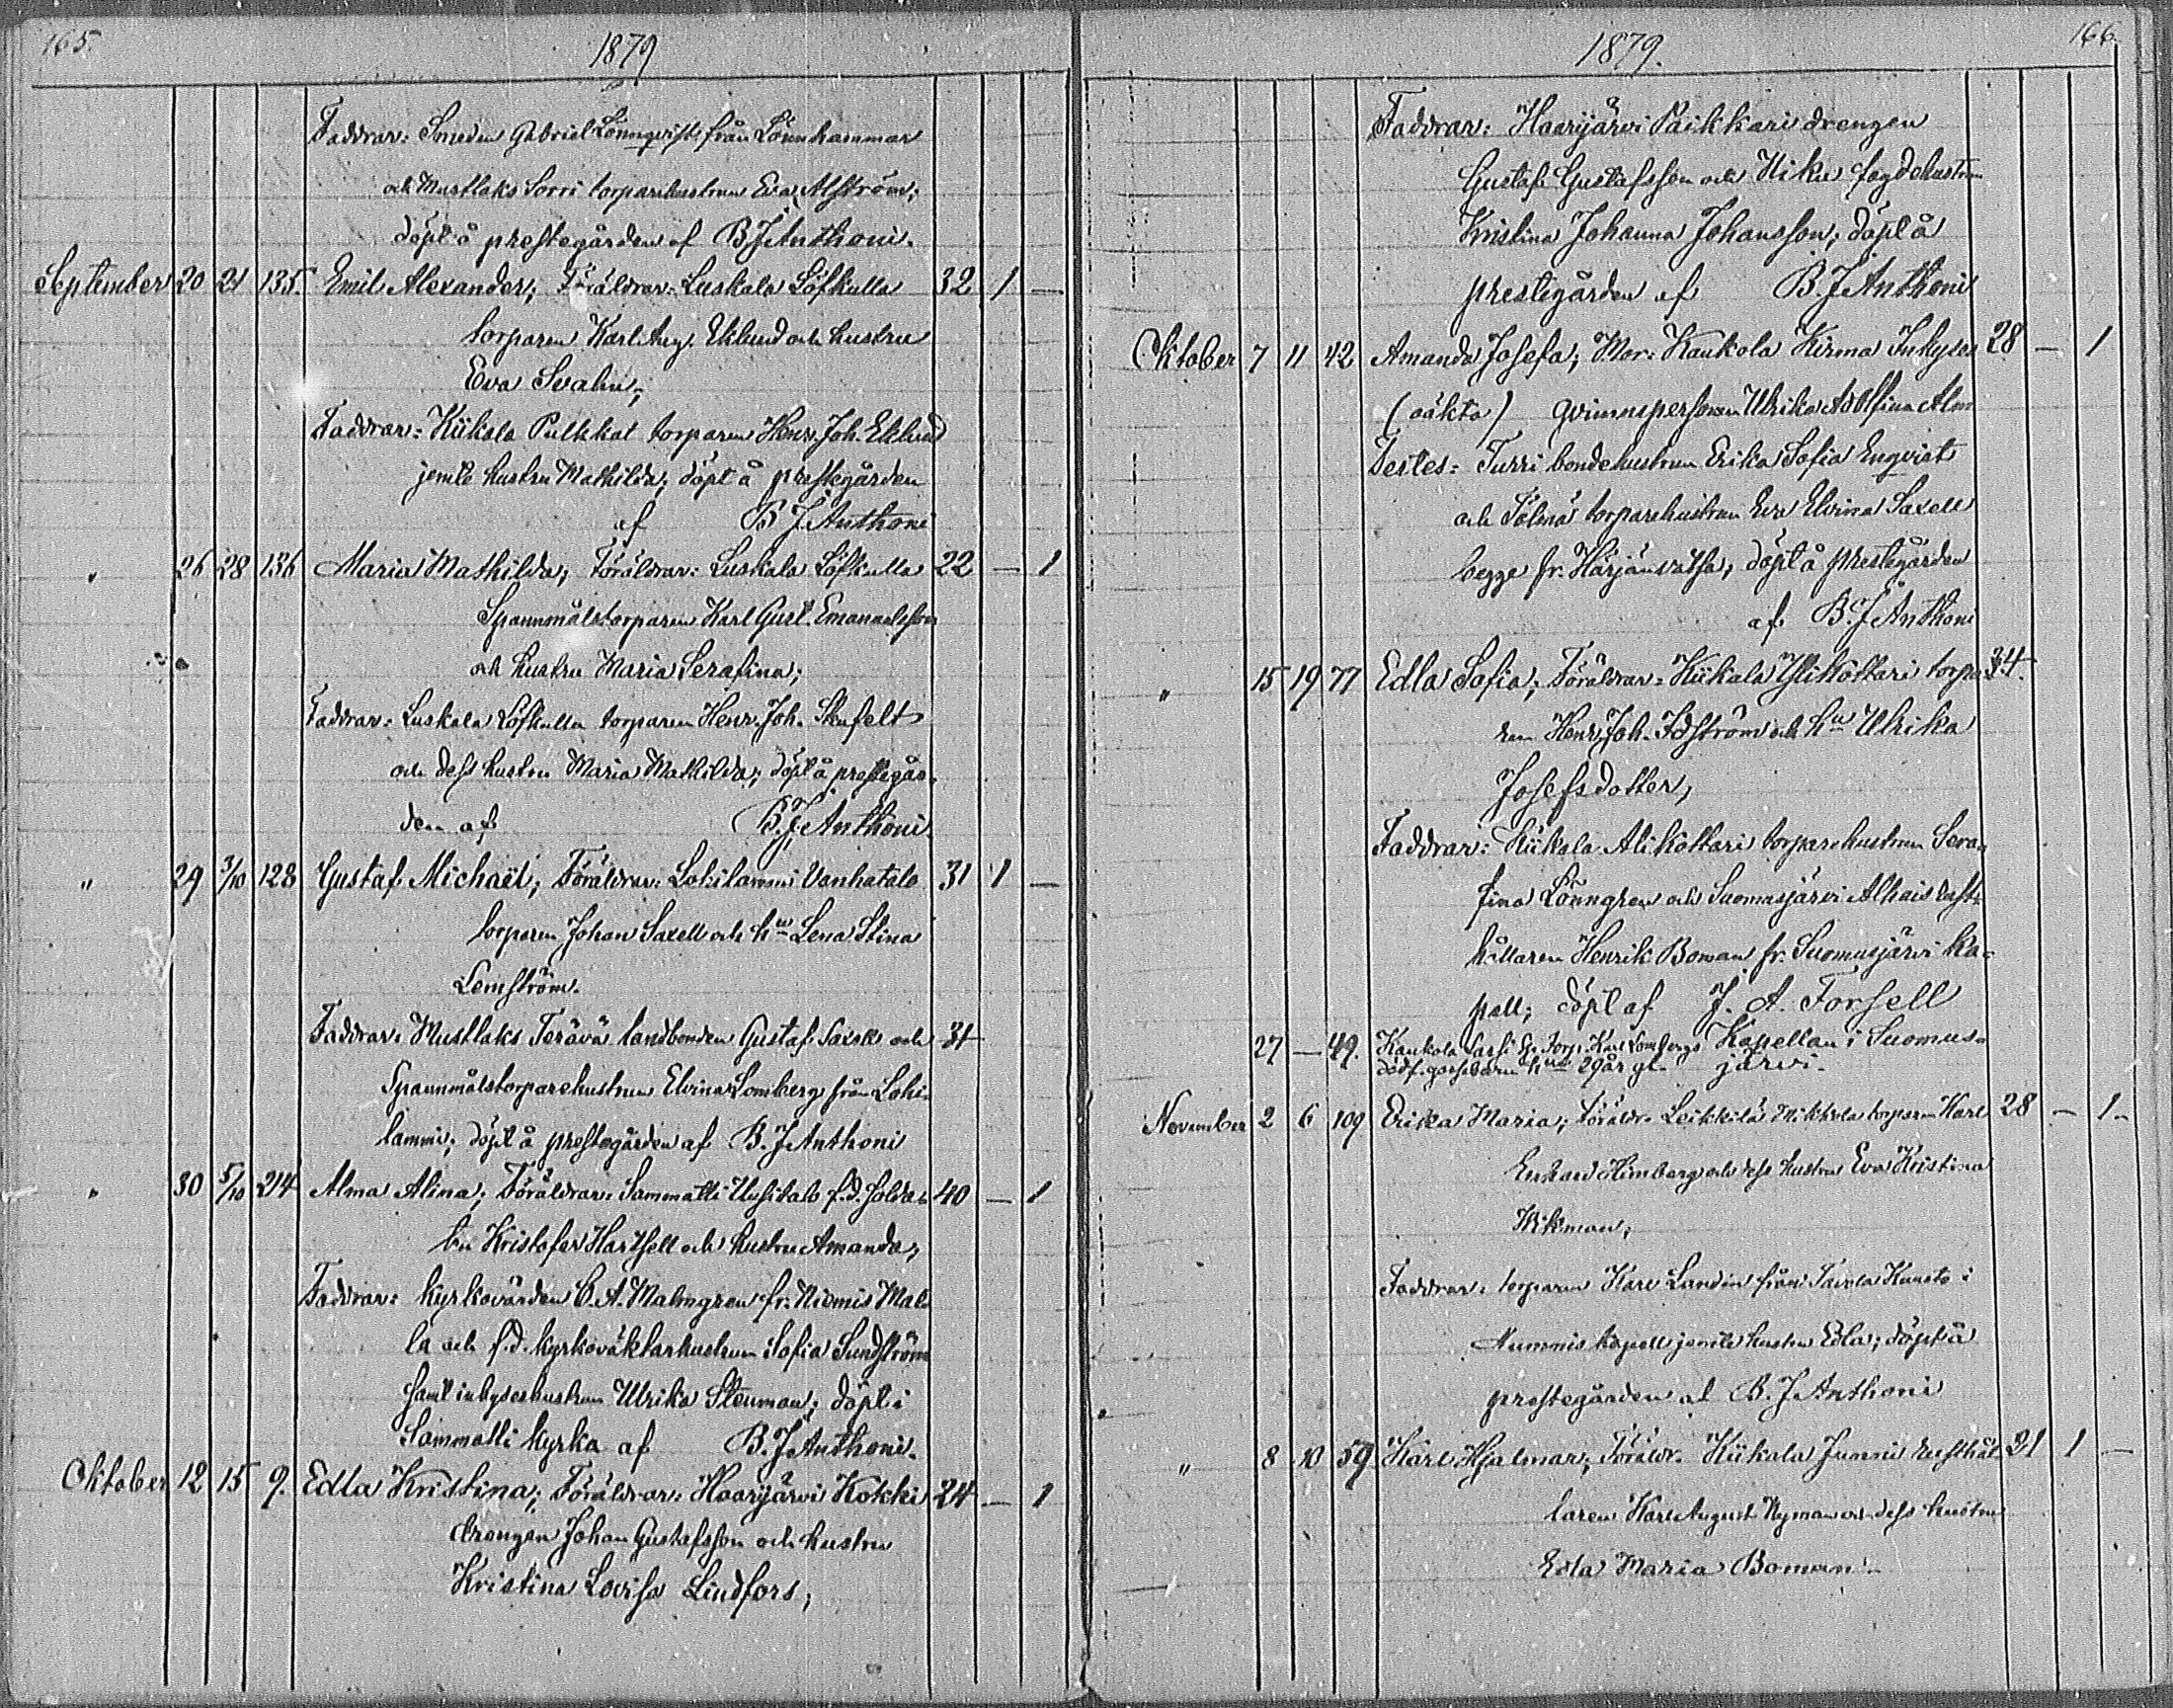 165.
1879
Faddrar: Smeden Gabriel Lönnqvist från Lönnhammar
och Mustlaks Sorri torparehustrun Eva Ahlström;
döpt å prestegården af B J Anthoni.
September 20 21 135. Emil Alexander; Föräldrar: Luskala Löfkulla 32 1 —
torparen Karl Aug. Eklund och hustru
Eva Svahn;
Faddrar: Kiikala Pulkkal torparen Henr. Joh. Eklund
jemte hustru Mathilda; döpt å prestegården
af B J Anthoni
" 26 28 136 Maria Mathilda; Föräldrar: Luskala Löfkulla 22 — 1
Spannmålstorparen Karl Gust. Emanuelsson
och hustru Maria Serafina;
Faddrar: Luskala Löfkulla torparen Henr. Joh. Stenfelt
och dess hustru Maria Mathilda; döpt å prestegår-
den af B. J. Anthoni
" 29 3/10 128 Gustaf Michaël; Föräldrar: Lohilammi Vanhatalo 31 1 —
torparen Johan Saxell och hu Lena Stina
Lemström.
Faddrar: Mustlaks Terävä landbonden Gustaf och 31
Spannmålstorparehustrun Elvina Lomberg från Lohi-
lammi; döpt å prestegården af B. J Anthoni
" 30 5/10 214 Alma Alina; Föräldrar: Sammatti Uusitalo f.d. solda- 40 — 1
ten Kristofer Hartsell och hustru Amanda;
Faddrar: Kyrkovärden C. A. Malmgren fr. Niemis Mal-
la och f.d. kyrkoväktarhustrun Sofia Sundström
samt inhyseshustrun Ulrika Stenman; döpt i
Sammatti kyrka af B. J Anthoni.
Oktober 12 15 9. Edla Kristina; Föräldrar: Haarijärvi Kokki 24 — 1
drengen Johan Gustafsson och hustru
Kristina Lovisa Lindfors;
166.
1879.
Faddrar: Haarijärvi Paikkari drengen
Gustaf Gustafsson och Uiku fogdehustrun
Kristina Johanna Johansson; döpt å
prestegården af B. J Anthoni
Oktober 7 11 42 Amanda Josefa; Mor: Kaukola Kirma Inhyses 28 — 1
(oäkta) qvinnspersonen Ulrika Adolfina Alm
Testes: Turri bondehustrun Erika Sofia Enqvist
och Tölmä torparehustrun Eva Elvina Saxell
begge fr. Härjänvatsa; döpt å prestegården
af B. J Anthoni
" 15 19 77 Edla Sofia; Föräldrar: Kiikala Ylikottari torpa- 34.
ren Henr. Joh. Idström och hu Ulrika
Josefsdotter;
Faddrar: Kiikala Alikottari torparehustrun Sera-
fina Lönngren och Suomusjärvi Alhais rust-
hållaren Henrik Boman fr. Suomusjärvi Ka-
pell; döpt af J. A. Forsell
27 — 49. Kaukola torp. Karl Lombergs Kapellan i Suomus-
dödf. gossebarn 29 år gl. järvi.
November 2 6 109 Erika Maria; Föräldr. Leikkilä Mikkola torparen Karl 28 — 1
Himberg och dess hustru Eva Kristina
Wikman;
Faddrar: torparen Karl Landin från Tavola i
Nummis kapell jemte hustru Edla; döpt å
prestegården af B. J Anthoni
" 8 10 59 Karl Hjalmar; Föräldr. Kiikala Junnii rusthål- 21 1 —
laren Karl August Nyman och dess hustru
Edla Maria Boman.